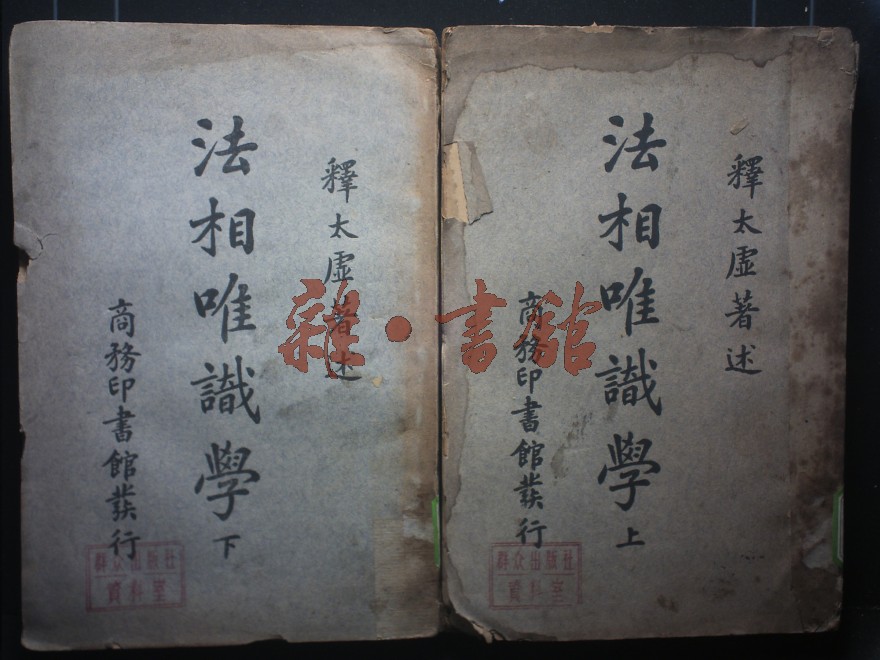 釋太虛著述
法相唯識學上
商務印書館發行
群众出版社
資料室
釋太虛著述
法相唯識學下
商務印書館發行
群众出版社
資料室
雜·書館